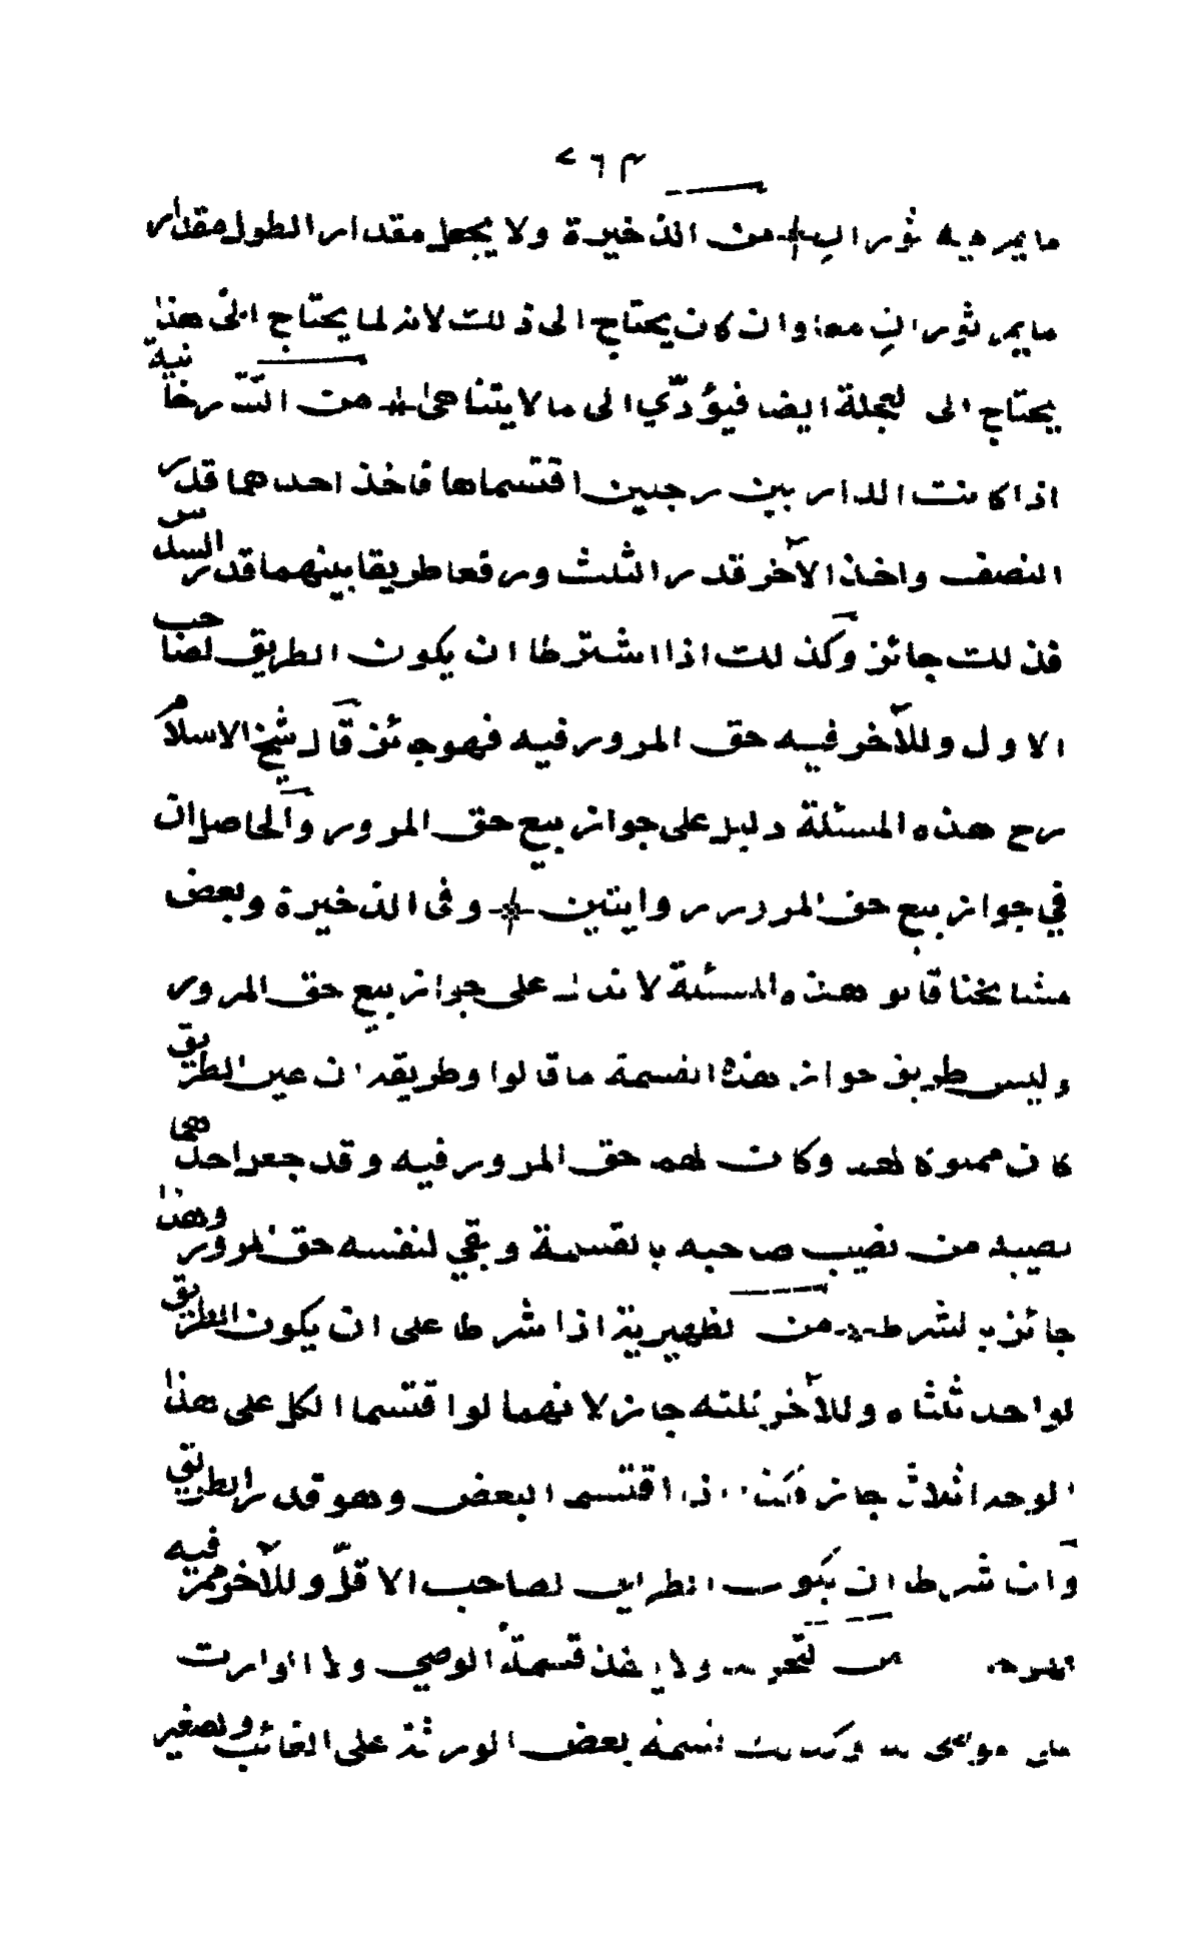 ٢٦٣
ما يمر فيه ثور اب من الذخيرة ولا يجعل مقدار الطول مقدار
ما يمر ثوران معا وان كان يحتاج الى ذلك لانه لما يحتاج الى هذا
يحتاج الى العجلة ايضا فيؤدّي الى ما لا يتناهى من التتّرخانية
اذا كانت الدار بين رجلين اقتسماها فاخذ احدهما قدر
النصف واخذ الآخر قدر الثلث ورفعا طريقا بينهما قدر السدس
فذلك جائز وكذلك اذا اشترطا ان يكون الطريق لصاحب
الاول وللآخر فيه حق المرور فيه فهو جائز قال شيخ الاسلام
رح هذه المسئلة دليل على جواز بيع حق المرور والحاصل ان
في جواز بيع حق المرور روايتين وفى الذخيرة وبعض
مشايخنا قالو هذه المسئلة لا تدل على جواز بيع حق المرور
وليس طريق جواز هذه القسمة ما قالوا وطريقه ان عين الطريق
كان مملوكا لهما وكان لهما حق المرور فيه وقد جعل احدهما
نصيبه من نصيب صاحبه بالقسمة وبقي لنفسه حق المرور وهذا
جائز بالشرط من الظهيرية اذا شرطا على ان يكون الطريق
لواحد ثلثاه وللآخر ثلثه جاز لانهما لوا قتسما الكل على هذا
الوجه اثلاثا جاز فكذا اذا اقتسما البعض وهو قدر الطريق
وان شرطا ان يكون الطريق لصاحب الاقلّ وللآخر ممر فيه
من ولا ينفذ قسمة الوصي ولا الوارث
على وكذلك قسمة بعض الورثة على الغائب والصغير